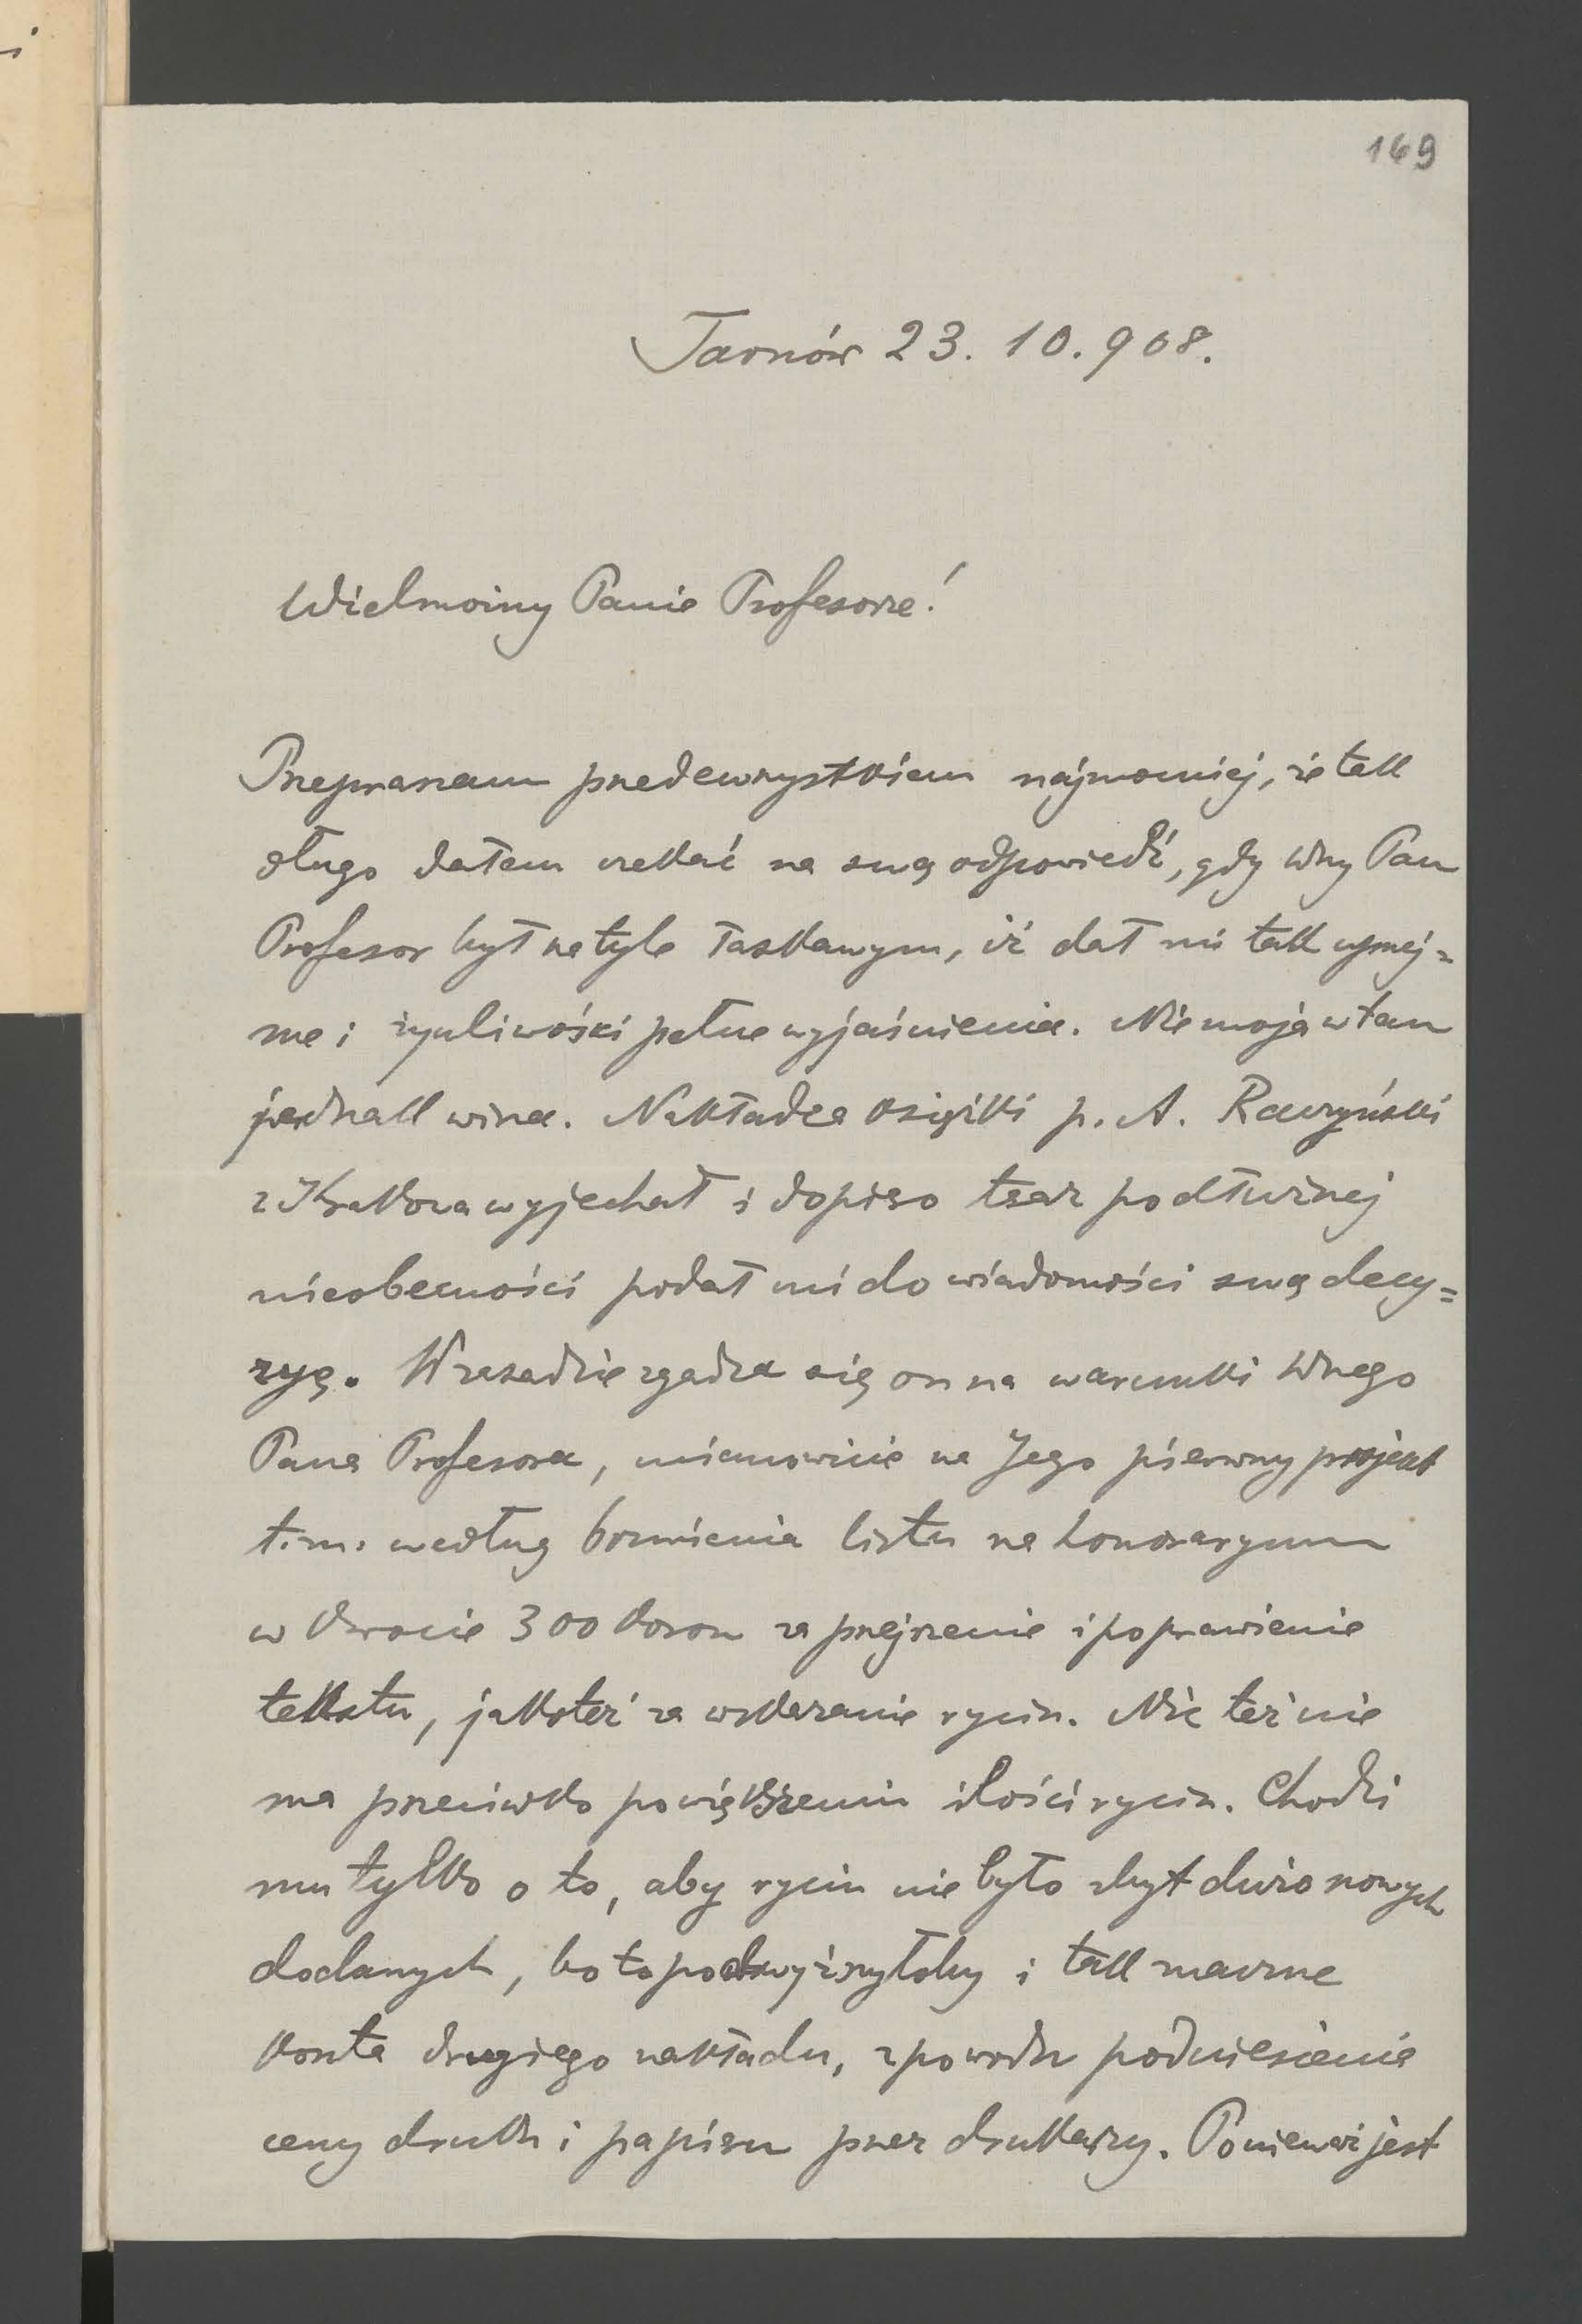 169
Tarnów 23. 10. 908.
Wielmożny Panie Profesorze!
Przepraszam przedewszystkiem najmocniej, że tak
długo dałem czekać na swą odpowiedź, gdy Wny Pan
Profesor był na tyle łaskawym, iż dał mi tak uprzej=
me i życzliwości pełne wyjaśnienia. Nie moja w tem
jednak wina. Nakładca książki p. A. Raczyński
z Krakowa wyjechał i dopiero teraz po dłuższej
nieobecności podał mi do wiadomości swą decy=
zyę. W zasadzie zgadza się on na warunki Wnego
Pana Profesora, mianowicie na Jego pierwszy projekt
t. zn. według brzmienia listu na honoraryum
w kwocie 300 koron za przejrzenie i poprawienie
tekstu, jakoteż za wskazanie rycin. Nic też nie
ma przeciwko powiększeniu ilości rycin. Chodzi
mu tylko o to, aby rycin nie było zbyt dużo nowych
dodanych, bo to podwyższyłoby i tak znaczne
koszta drugiego nakładu, z powodu podniesienia
ceny druku i papieru przez drukarzy. Ponieważ jest